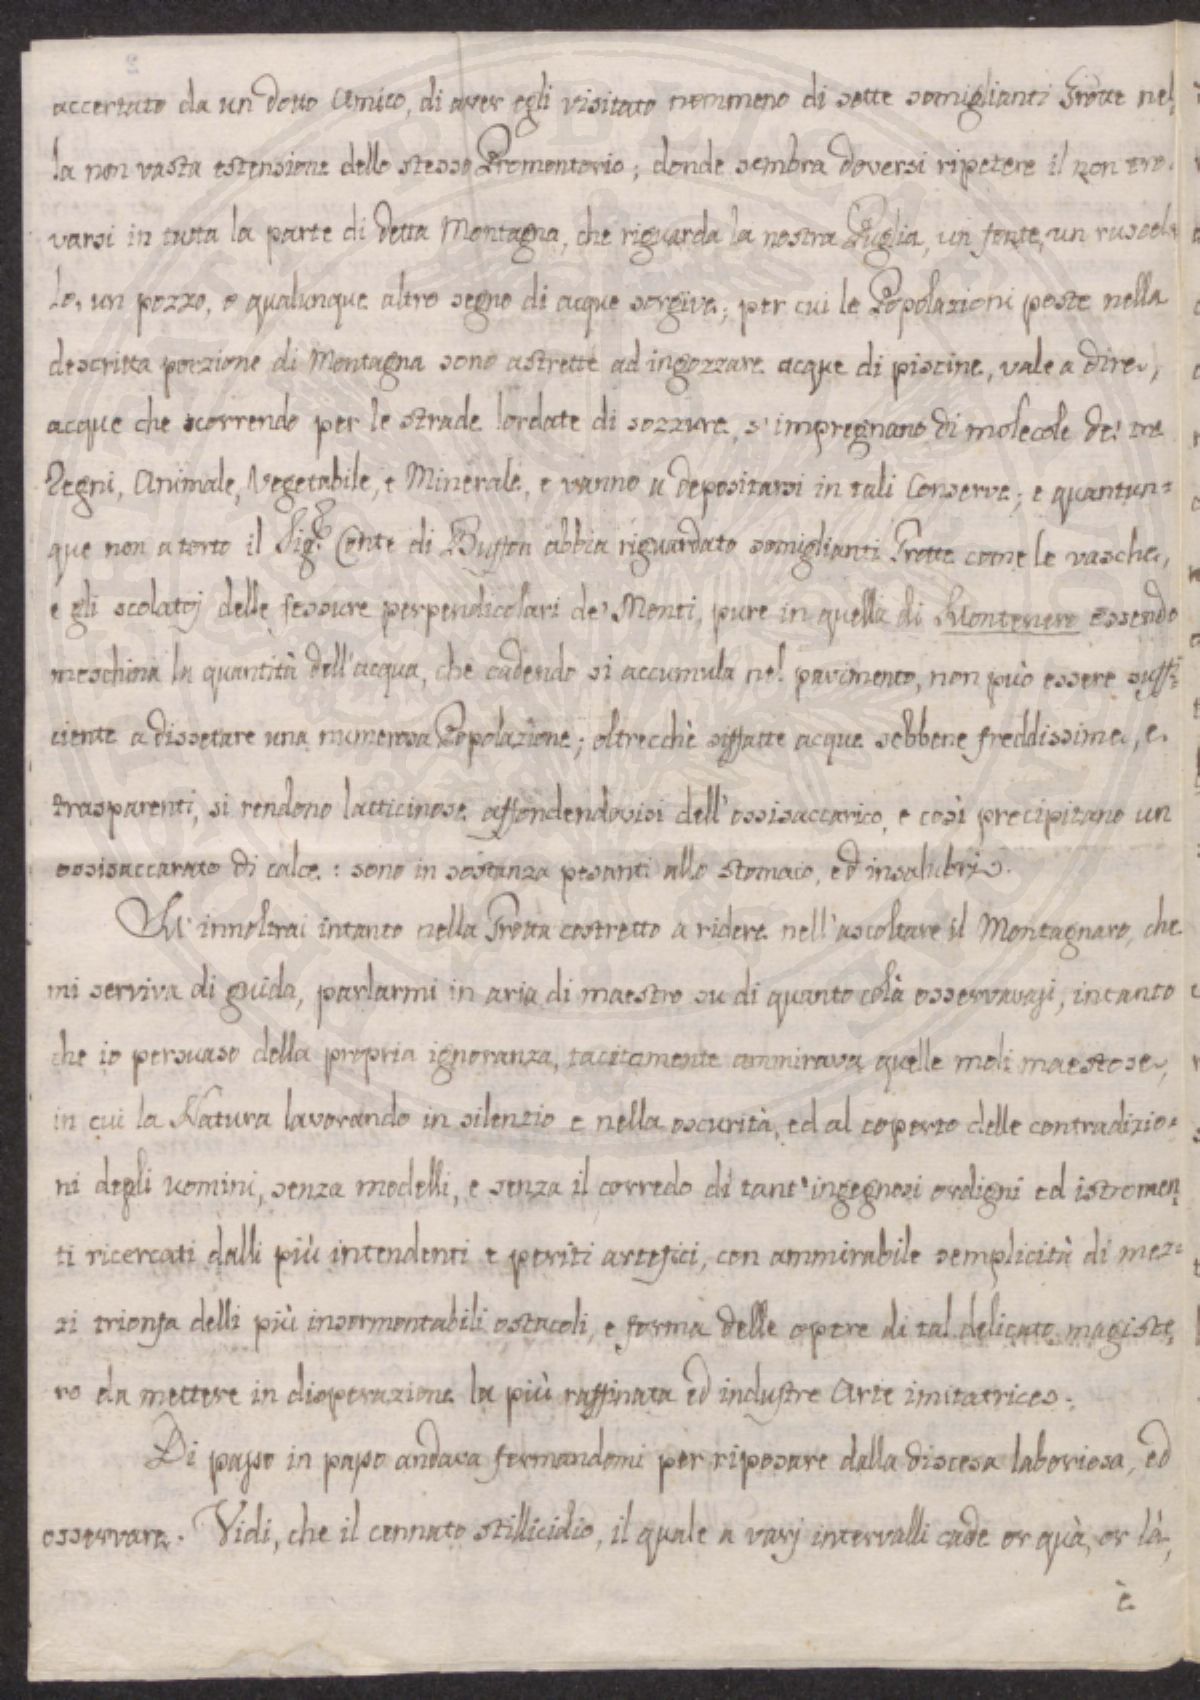 accertato da un dotto Amico, di aver egli visitato nommeno di sette somiglianti Grotte nel,
la non vasta estensione dello stesso Promontorio; donde sembra doversi ripetere il non tro,
varsi in tutta la parte di detta Montagna, che riguarda la nostra Puglia, un fonte, un ruscel,
lo, un pozzo, o qualunque altro segno di acque sorgive; per cui le Popolazioni poste nella
descritta porzione di Montagna sono astrette ad ingozzare acque di piscine, vale a dire,
acque che scorrendo per le strade lordate di sozzure, s'impregnano di molecole de' tre
Regni, Animale, Vegetabile, e Minerale, e vanno a depositarsi in tali Conserve; e quantun=
que non a torto il Sig.r Conte di Buffon abbia riguardato somiglianti Grotte come le vasche,
e gli scolatoj delle fessure perpendicolari de' Monti, pure in quella di Montenero essendo
meschina la quantità dell'acqua, che cadendo si accumula nel pavimento, non può essere suffi=
ciente a dissetare una numerosa Popolazione; oltrecchè siffatte acque sebbene freddissime, e
trasparenti, si rendono latticinose affondendovisi dell'ossisaccarico, e così precipitano un
ossisaccarato di calce: sono in sostanza pesanti allo stomaco, ed insalubri.
M'innoltrai intanto nella Grotta costretto a ridere nell'ascoltare il Montagnaro, che
mi serviva di guida, parlarmi in aria di maestro su di quanto colà osservavasi, intanto
che io persuaso della propria ignoranza, tacitamente ammirava quelle moli maestose,
in cui la Natura lavorando in silenzio e nella oscurità, ed al coperto delle contradizio=
ni degli uomini, senza modelli, e senza il corredo di tant'ingegnosi ordigni ed istromen,
ti ricercati dalli più intendenti e periti artefici, con ammirabile semplicità di mez=
zi trionfa delli più insormontabili ostacoli, e forma delle opere di tal delicato magiste,
ro da mettere in disperazione la più raffinata ed industre Arte imitatrice.
Di passo in passo andava fermandomi per riposare dalla discesa laboriosa, ed
osservare. Vidi, che il cennato stillicidio, il quale a varj intervalli cade or quà, or là,
è